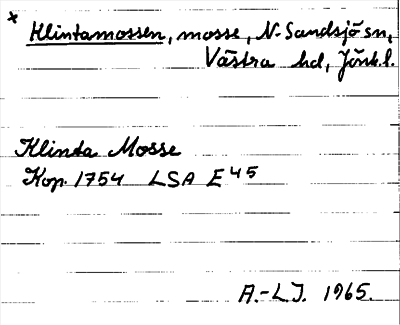 × Klintamossen, mosse, N. Sandsjö sn,
Västra hd, Jönk.l.
Klinta Mosse
Kop. 1754 LSA E 45
A.-L.J. 1965.